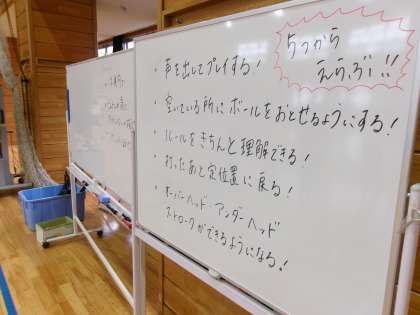 5つから
えらぶ!!
・声を出してプレイする!
・空いている所にボールをおとせるようにする!
・ルールをきちんと理解できる!
・打ったあと定位置に戻る!
・オーバーヘッド・アンダーヘッド
ストロークができるようになる!